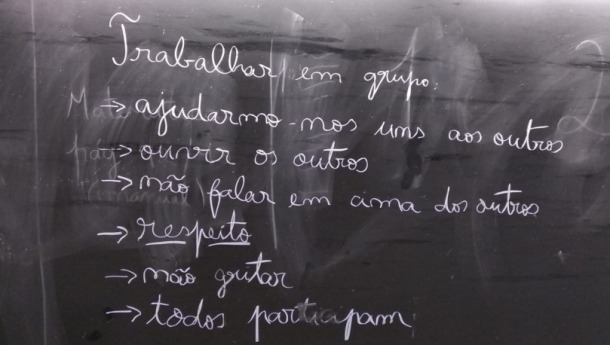 Trabalhar em grupo:
→ ajudarmo-nos uns aos outros
→ ouvir os outros
→ não falar em cima dos outros
→ respeito
→ não gritar
→ todos participam